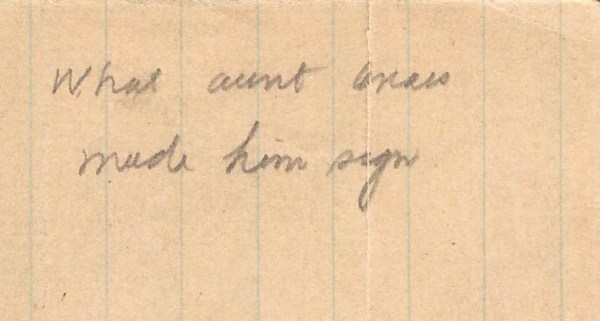 What aunt Anais
made him sign